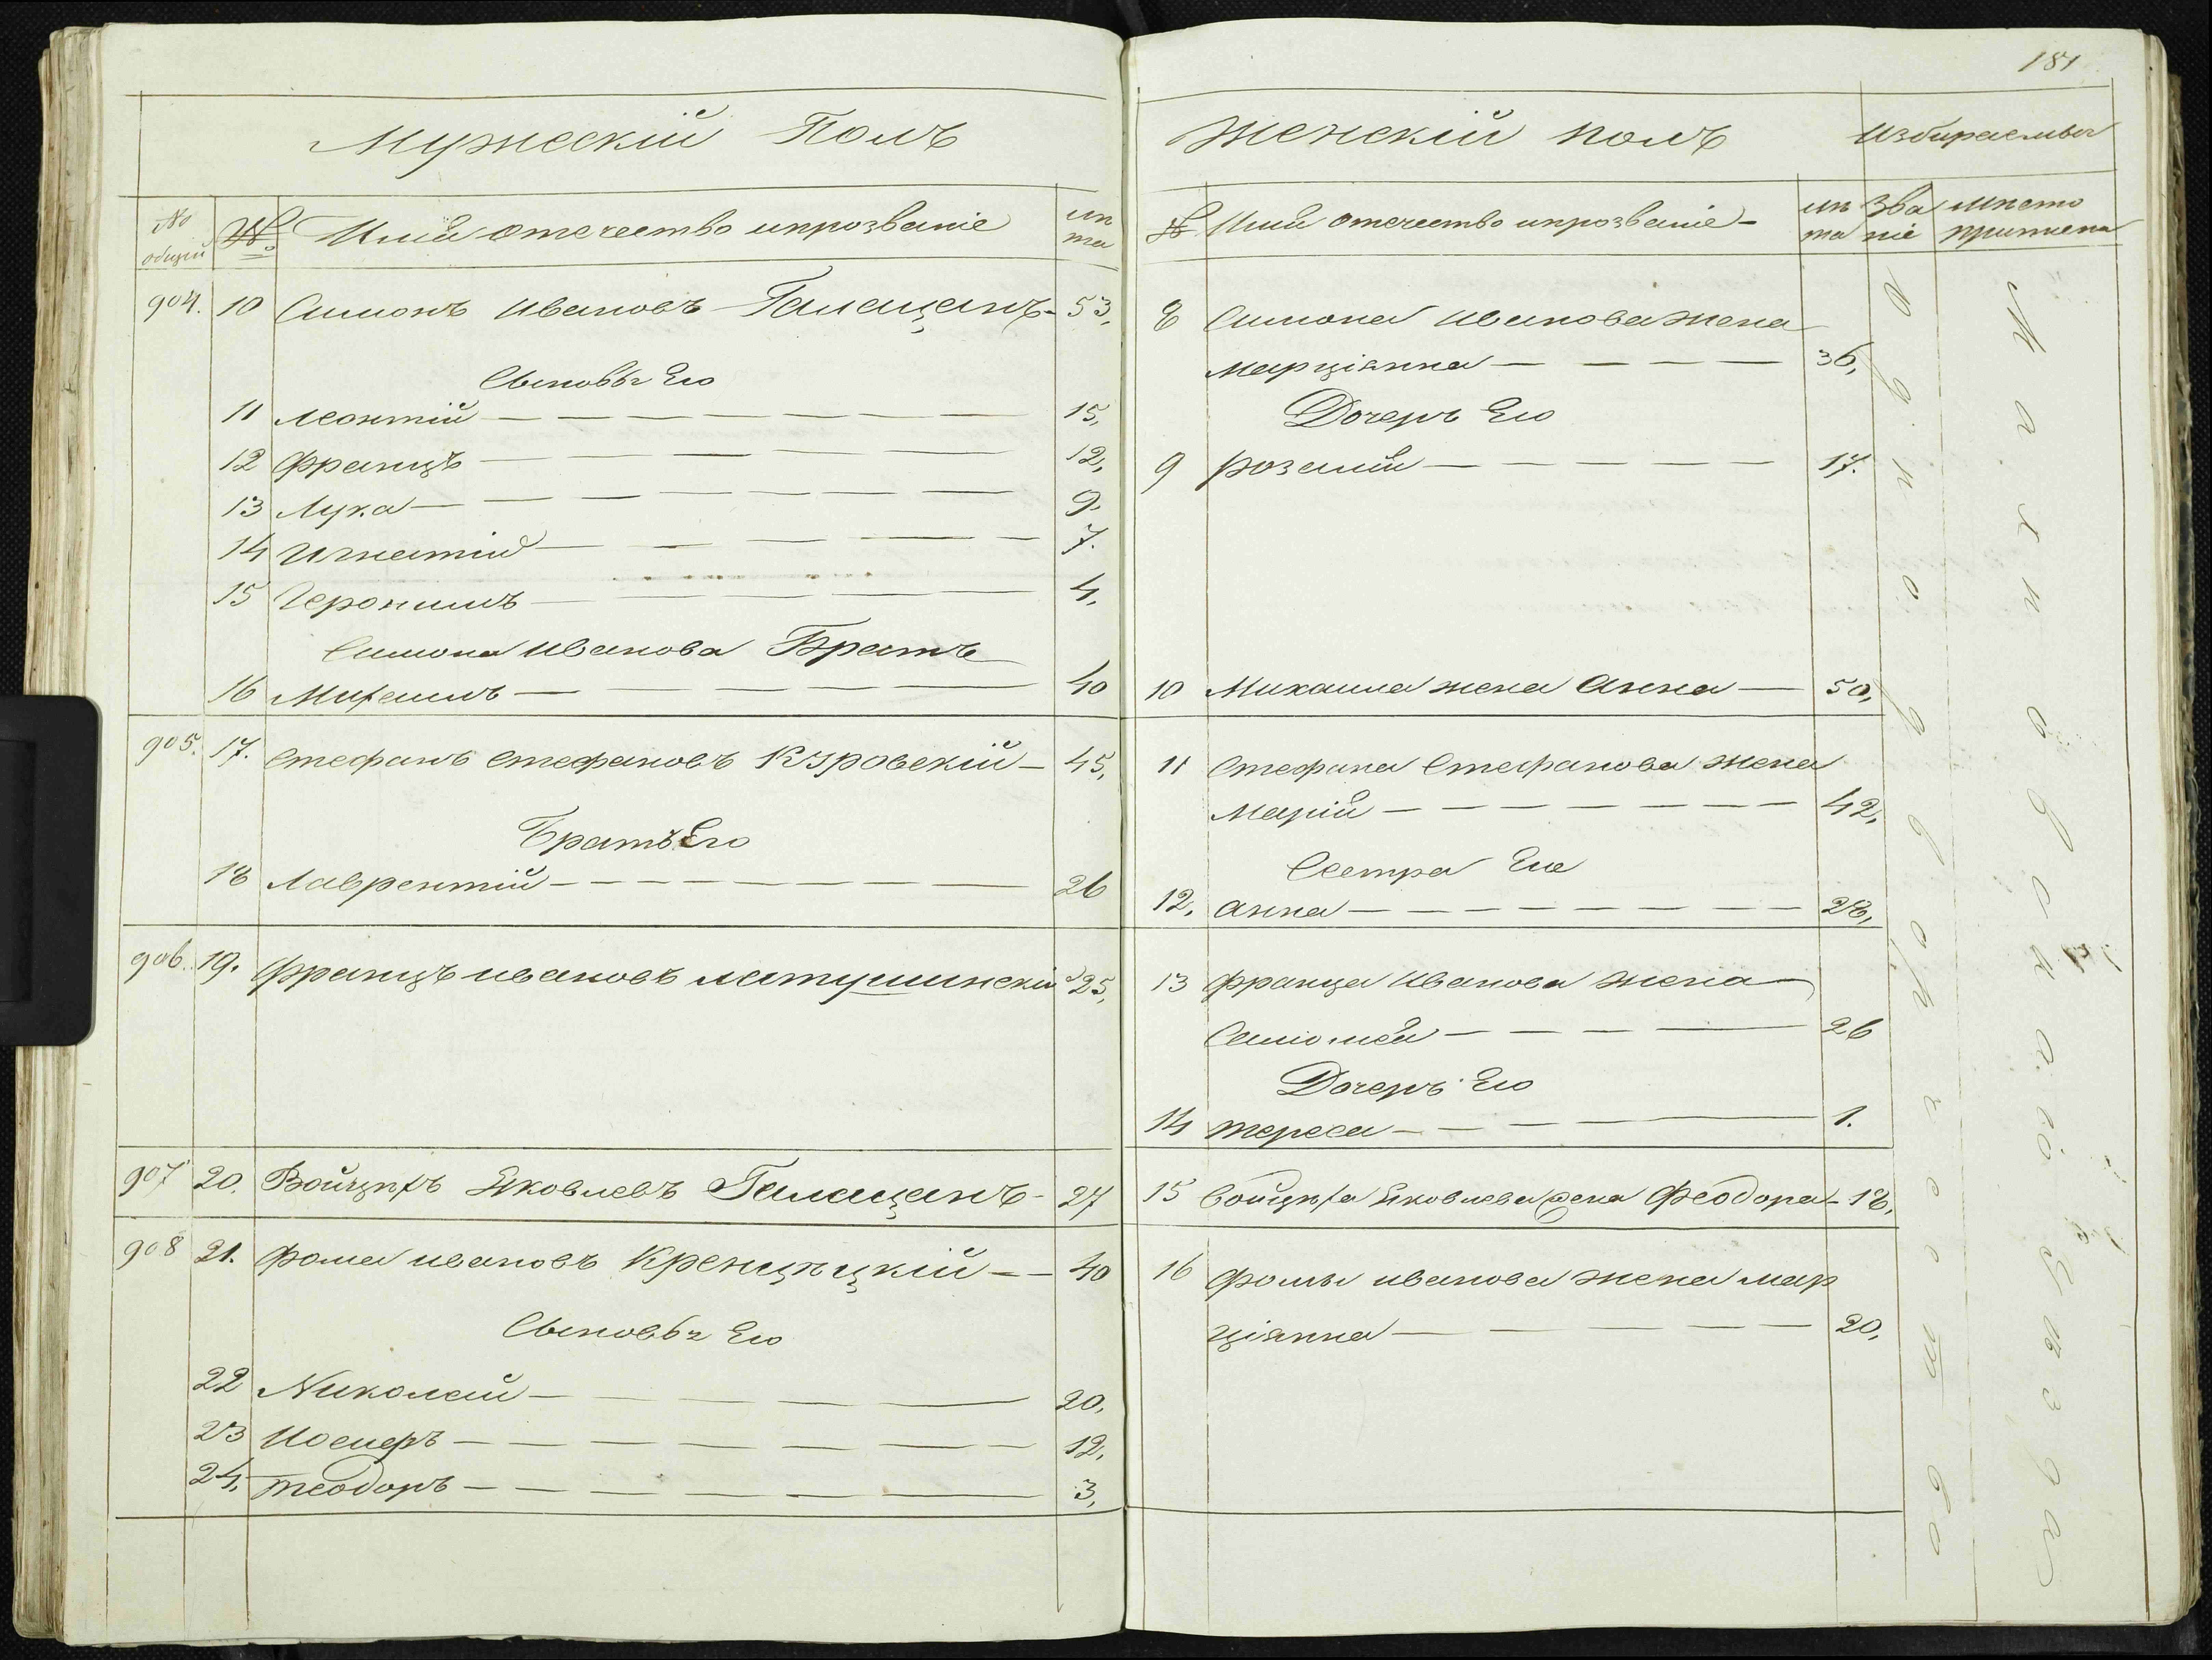 181
Мужескій Полъ
№ общій
№
Имя отечество и прозваніе
лѣта
904. 10 Симонъ Ивановъ Галащанъ - 53,
Сыновья Его
11 Леонтій 15,
12 Францъ 12,
13 Лука 9.
14 Игнатій 7.
15 Іеронимъ 4.
Симона Иванова Братъ
16 Михаилъ 40
905. 17. Стефанъ Стефановъ Куровскій 45,
Братъ Его
18 Лаврентій 26
906. 19. Францъ Ивановъ Матушинскій 25,
907 20. Войцѣхъ Яковлевъ Галащанъ - 27
908 21. Фома Ивановъ Кренцѣцкій 40
Сыновья Его
22 Николай 20,
23 Иосифъ 12,
24, Теодоръ 3,
Женскій полъ
Избираемыя
№
Имя отечество и прозваніе
лѣта
Званіе
Мѣсто
8 Симона Иванова жена
Марціянна 36,
Дочерь Его
9 Розалія 17.
10 Михаила жена Анна 50,
11 Стефана Стефанова жена
Марія 42,
Сестра Ея
12. Анна 28,
13 Франца Иванова жена
Саломея 26
Дочерь Его
14 Тереса 1.
15 Войцѣха Яковлева жена Феодора - 18,
16 Фомы Иванова жена Мар
ціянна 20,